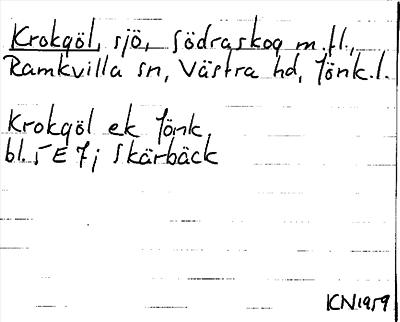 Krokgöl, sjö, Södraskog m.fl.,
Ramkvilla sn, Västra hd, Jönk.l.
Krokgöl ek Jönk,
bl. 5 E 7j Skärbäck
KN1959